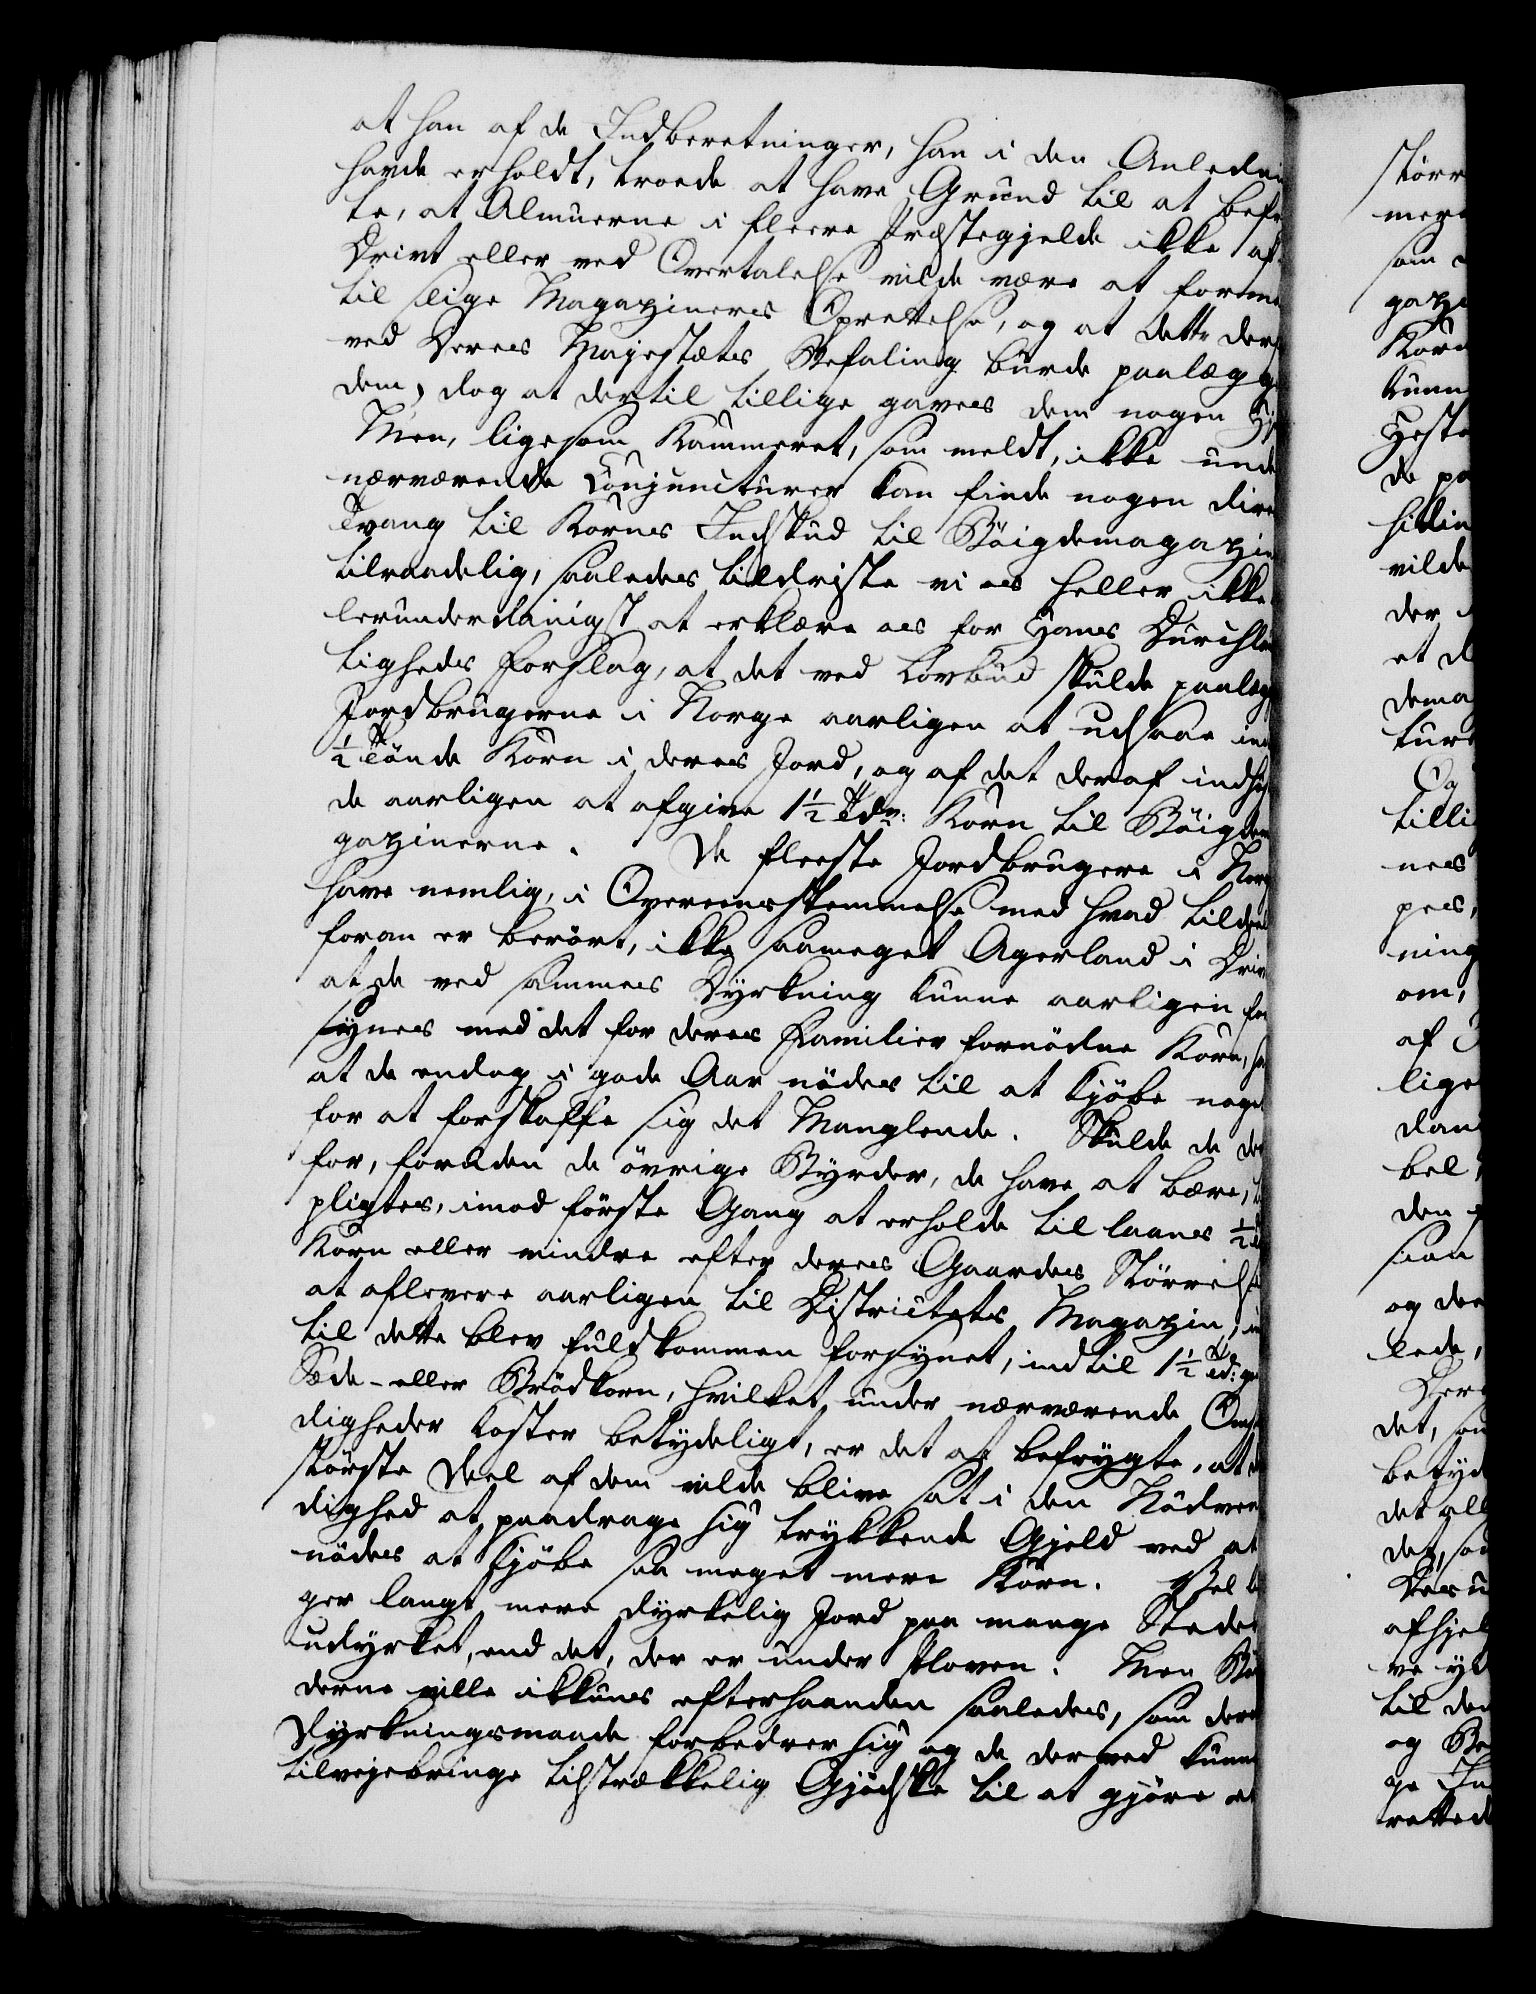 at han af de Indberetninger, han i den Anlednin
havde erholdt, troede at have Grund til at befr
te, at Almuerne i fleere Præstegjelde ikke af
Drivt eller ved Overtalelse vilde være at forme
til slige Magaziners Oprettelse, og at dette der
ved Deres Majestæts Befaling burde paalægge
dem, dog at dertil tillige gaves dem nogen Hj
Men, ligesom Kammeret, som meldt, ikke unde
nærværende Conjuncturer kan finde nogen dire
Tvang til Korns Indskud til Bøigdemagazin
tilraadelig, saaledes tildriste vi os heller ikke
lerunderdanigst at erklære os for Hans Durchla
tigheds Forslag, at det ved Lovbud skulde paalæg
Jordbrugerne i Norge aarligen at udsaae ind
½ Tønde Korn i deres Jord, og af det deraf indhø
de aarligen at afgive 1½ Tdr: Korn til Bøigdem
gazinerne. De fleeste Jordbrugere i Norg
have nemlig, i Overeensstemmelse med hvad tildeel
foran er berørt, ikke saameget Agerland i Driv
at de ved sammes Dyrkning kunne aarligen for
synes med det for deres Familier fornødne Korn, sa
at de endog i gode Aar nødes til at kjøbe noge
for at forskaffe sig det Manglende. Skulde de der
for, foruden de øvrige Byrder, de have at bære,
pligtes, imod første Gang at erholde til laans ½
Korn eller mindre efter deres Gaardes Størrelse
at aflevere aarligen til Districtets Magazin, in
til dette blev fuldkommen forsynet, indtil 1½ Td: go
Sæde- eller Brødkorn, hvilket under nærværende Omst
digheder koster betydeligt, er det at befrygte, at d
største Deel af dem vilde blive sat i den Nødven
dighed at paadrage sig trykkende Gjeld ved at
nødes at kjøbe saa meget mere Korn. Vel li
ger langt mere dyrkelig Jord paa mange Steder
udyrket, end det, der er under Ploven. Men Bøn
derne ville ikkuns efterhaanden saaledes, som dere
Dyrkningsmaade forbedrer sig og de derved kunn
tilvejebringe tilstrækkelig Gjødske til at gjøre et